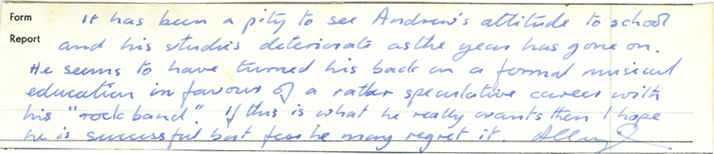 Form It has been a pity to see Andrew's attitude to school
Report and his studies deteriorate as the year has gone on.
He seems to have turned his back on a formal musical
education in favour of a rather speculative career with
his "rock band". If this is what he really wants then I hope
he is successful but fear he may regret it.